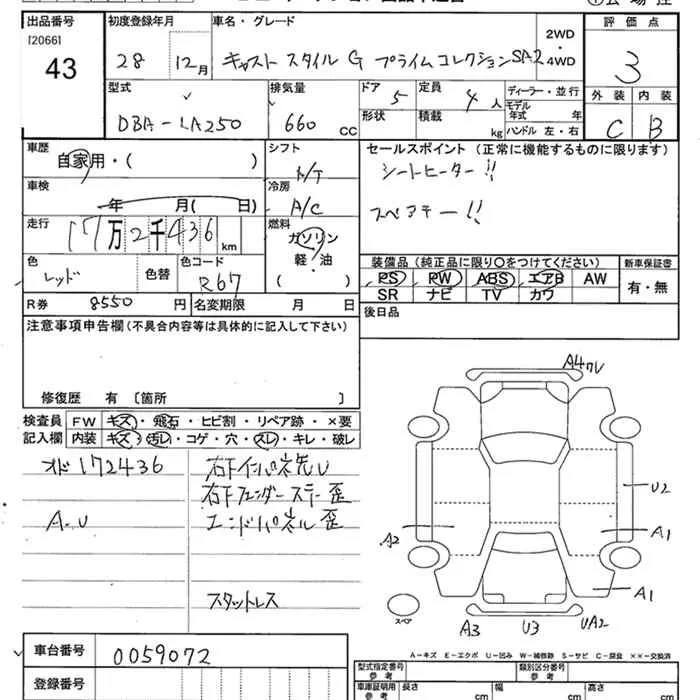 出品番号
[2066]
43
初度登録年月
28 12月
車名・グレード
キャスト スタイル G プライムコレクション SAⅡ
2WD
・
4WD
評価点
3
外装 内装
C B
型式
DBA-LA250
排気量
660 CC
ドア 5
形状
定員 4 人
積載 kg
ディーラー・並行
モデル年式 年
ハンドル 左・右
車歴
自家用・( )
シフト
A/T
セールスポイント (正常に機能するものに限ります)
シートヒーター!!
スペアキー!!
車検
年 月( 日)
冷房
A/C
走行
17万2千436 km
燃料
ガソリン
軽・油
( )
色
レッド
色替
色コード
R67
装備品 (純正品に限り○をつけてください)
PS PW ABS エアB AW
SR ナビ TV カワ
新車保証書
有・無
R券 8550 円
名変期限 月 日
後日品
注意事項申告欄(不具合内容等は具体的に記入して下さい)
修復歴 有 〔箇所 〕
検査員
記入欄
FW キズ・飛石・ヒビ割・リペア跡・×要
内装 キズ・汚レ・コゲ・穴・スレ・キレ・破レ
オド172436
A.U
右下インパネ先U
右下フェンダーステー歪
エンドパネル歪
スタットレス
A4ワレ
U2
A1
A2
A1
A3 U3 UA2
スペア
A-キズ E-エクボ U-凹み W-補修跡 S-サビ C-腐食 ××-交換済
車台番号 0059072
登録番号
型式指定番号
参考
類別区分番号
参考
車庫証明用
参考
長さ cm
幅 cm
高さ cm